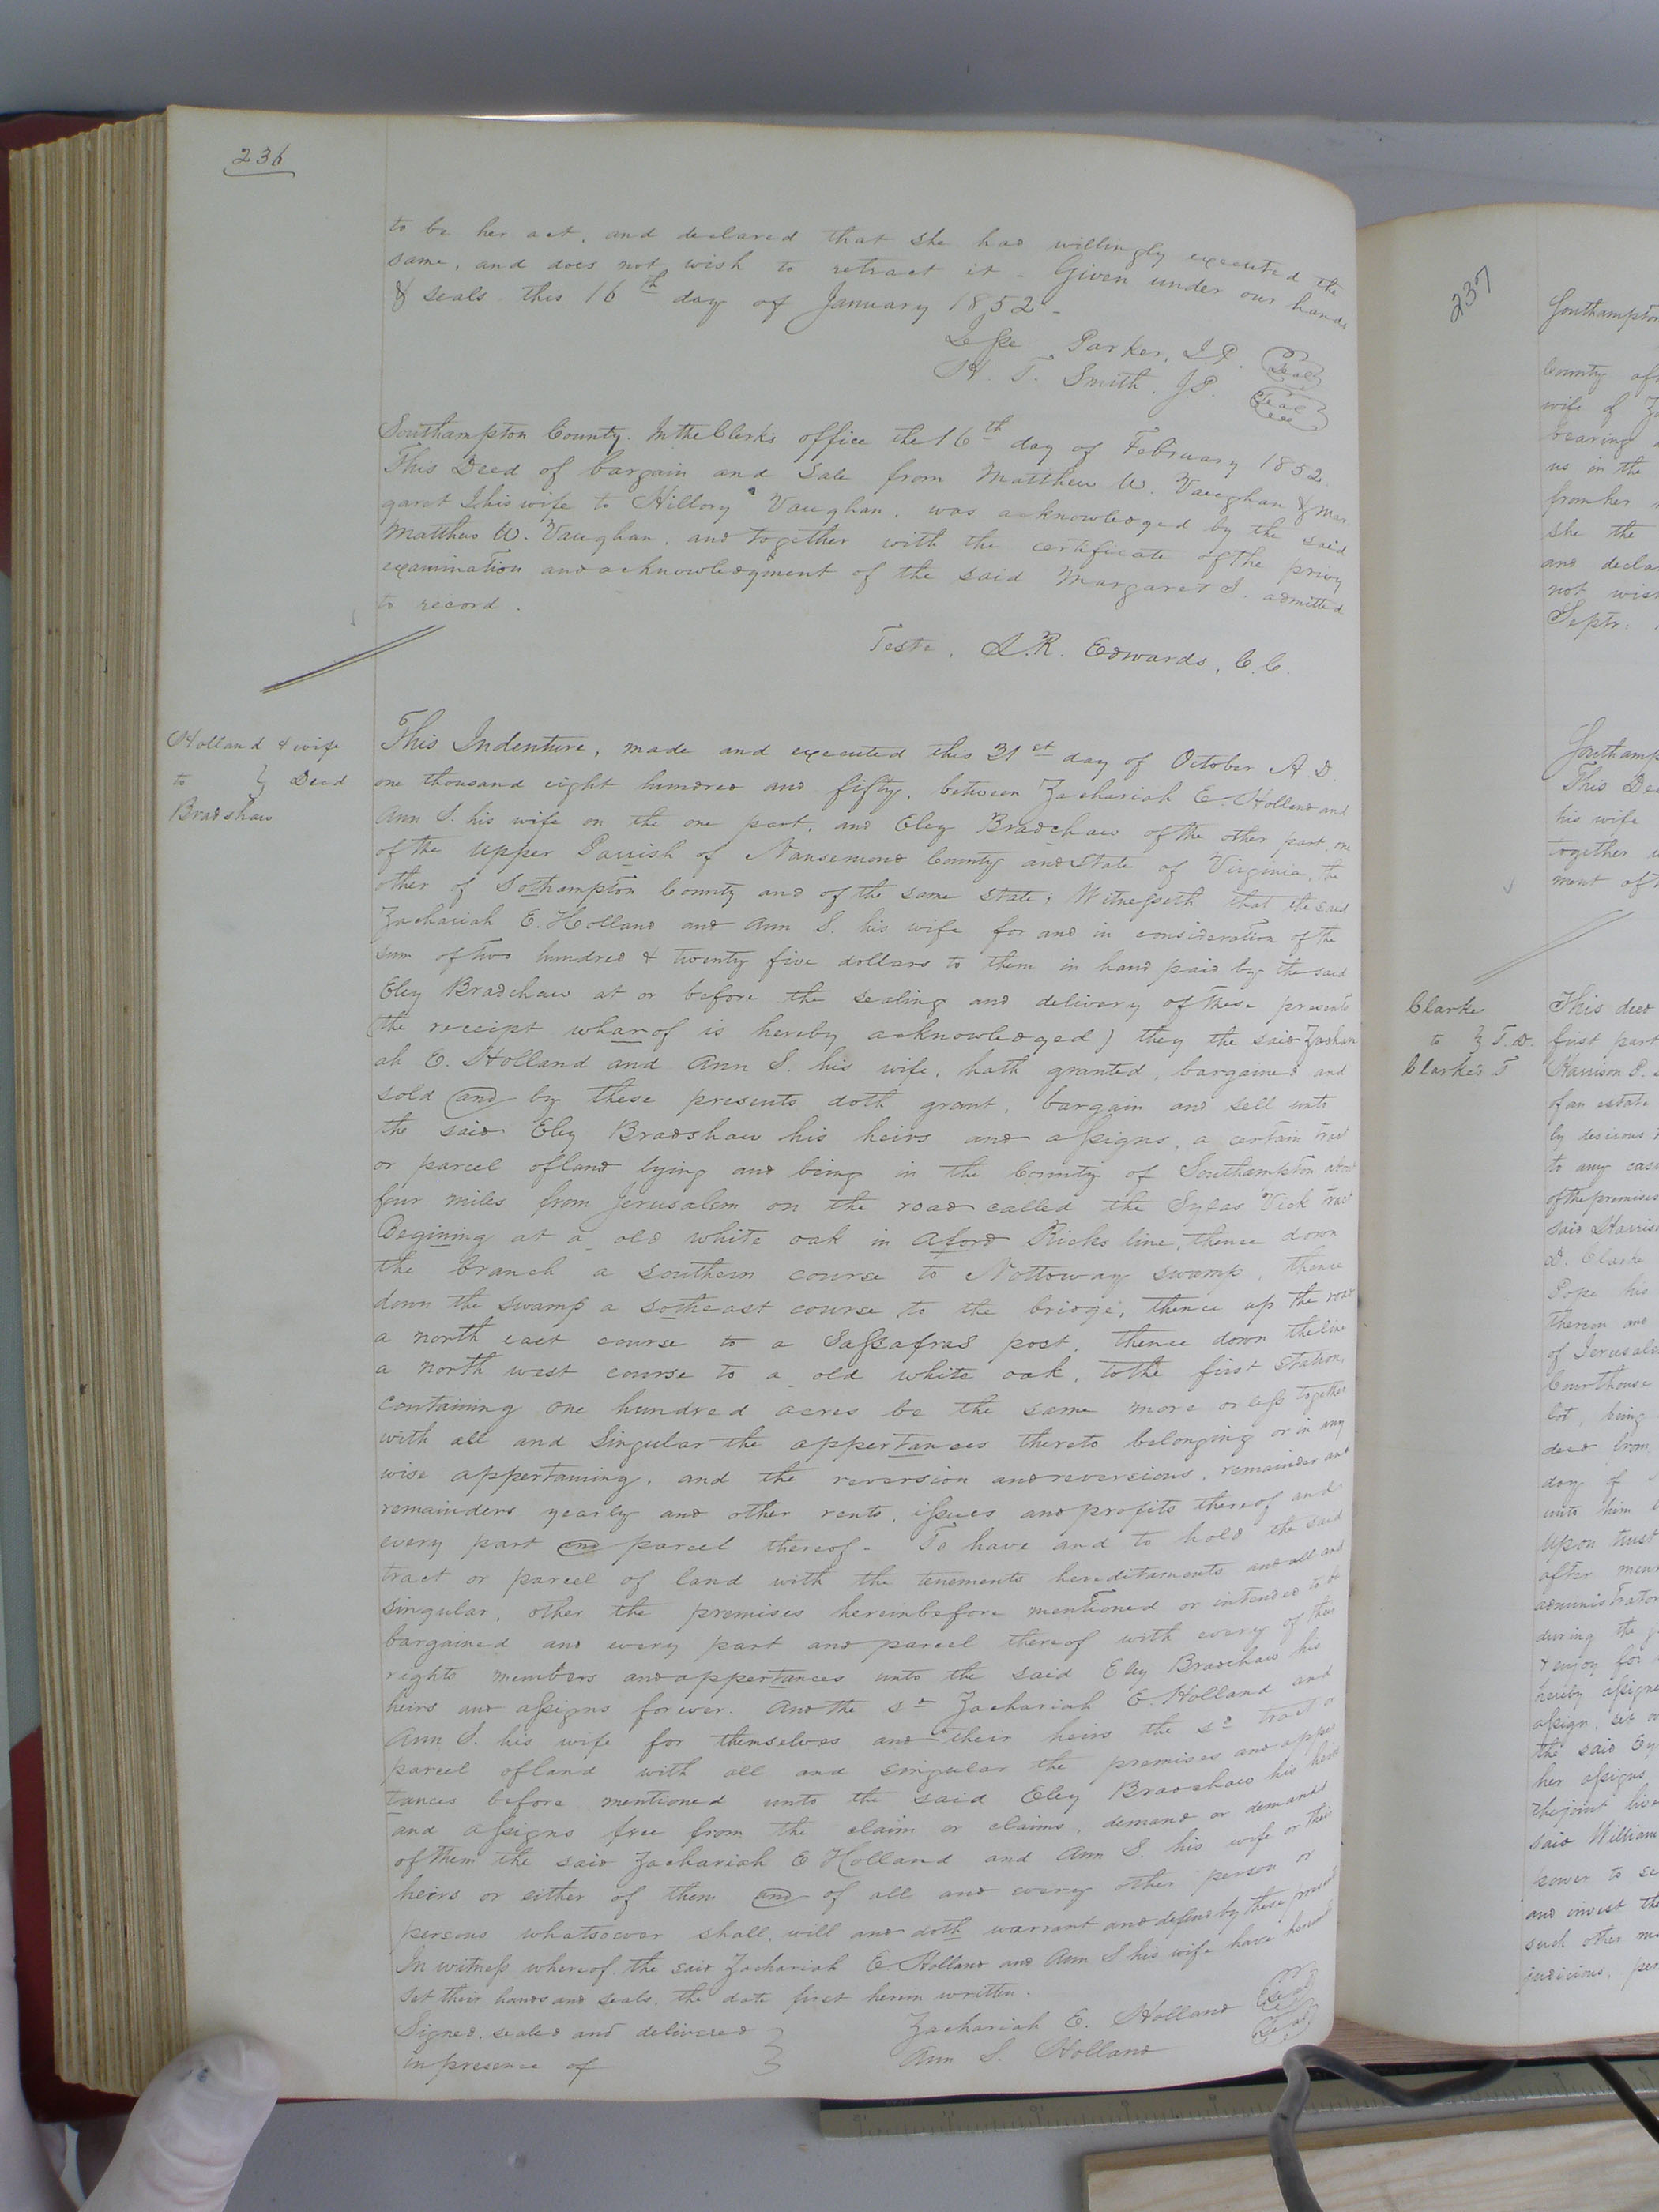 236
to be her act, and declared that she has willingly executed the
same, and does not wish to retract it - Given under our hands
& seals this 16th day of January 1852 -
Jesse Parker, J.P. Seal
H. T. Smith. JP. Seal
Southampton County. In the Clerk's office the 16th day of February 1852
This Deed of bargain and sale from Matthew W. Vaughan & Mar
garet S his wife to Hillory Vaughan, was acknowledged by the said
Matthew W. Vaughan, and together with the certificate of the privy
examination and acknowledgment of the said Margaret S. admitted
to record.
Teste, L.R. Edwards, C.C.
Holland & wife
to } Deed
Bradshaw
This Indenture, made and executed this 31st day of October A.D.
one thousand eight hundred and fifty, between Zachariah E. Holland and
Ann S. his wife on the one part, and Eley Bradshaw of the other part, one
of the Upper Parrish of Nansemond County and State of Virginia, the
other of Sothampton County and of the same State; Witnesseth that the said
Zachariah E. Holland and Ann S. his wife for and in consideration of the
sum of two hundred & twenty five dollars to them in hand paid by the said
Eley Bradshaw at or before the sealing and delivery of these presents
(the receipt wharof is hereby acknowledged) they the said Zachari
ah E. Holland and Ann S. his wife, hath granted, bargained and
sold and by these presents doth grant, bargain and sell unto
the said Eley Bradshaw his heirs and assigns, a certain tract
or parcel of land lying and being in the County of Southampton about
four miles from Jerusalem on the road called the Sylas Vick tract
Begining at a old white oak in Aford Ricks line, thence down
the branch a southern course to Nottoway swamp, thence
down the swamp a sotheast course to the bridge, thence up the road
a north east course to a Sassafras post, thence down the line
a north west course to a old white oak, to the first station,
containing one hundred acres be the same more or less together
with all and Singular the appertances thereto belonging or in any
wise appertaining, and the reversion and reversions, remainder and
remainders yearly and other rents, issues and profits thereof and
every part and parcel thereof - To have and to hold the said
tract or parcel of land with the tenements hereditaments and all and
singular, other the premises hereinbefore mentioned or intended to be
bargained and every part and parcel thereof with every of their
rights members and appertances unto the said Eley Bradshaw his
heirs and assigns forever. And the sd Zachariah E. Holland and
Ann S. his wife for themselves and their heirs the sd tract or
parcel of land with all and singular the premises and apper
tances before mentioned unto the said Eley Bradshaw his heirs
and assigns free from the claim or claims, demand or demands
of them the said Zachariah E Holland and Ann S. his wife or their
heirs or either of them and of all and every other person or
persons whatsoever shall, will and doth warrant and defend by these presents
In witness whereof the said Zachariah E. Holland and Ann S his wife have hereunto
set their hands and seals, the date first herein written.
Signed, sealed and delivered }
in presence of
Zachariah E. Holland Seal
Ann S. Holland Seal
237
Southampton
County af
wife of Za
bearing
us in the
from her
she the
and decla
not wish
Septr.
Southamp
This Dee
his wife
together
ment of
Clarke
to } T.D.
Clarke's T
This deed
first part
Harrison P.
of an estate
by desirous
to any
of the premises
said Harris
D. Clarke
Pope his
thereon and
of Jerusale
Courthouse
lot, being
deed from
day of
unto him
upon trust
after men
administrator
during the
& enjoy for
hereby assigne
assign, set ov
the said
her assigns
the joint live
said William
power to se
and invest the
such other
judicious, per